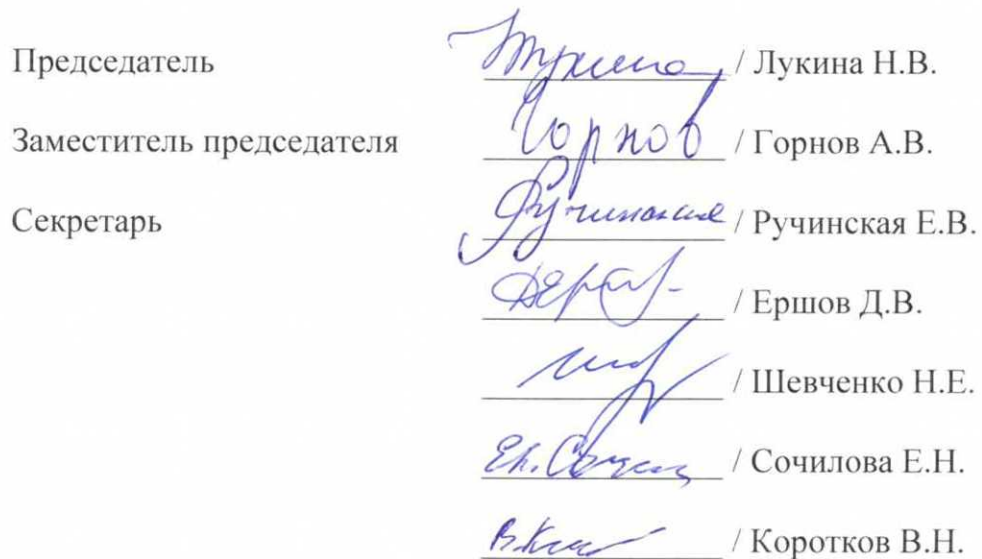 Председатель / Лукина Н.В.
Заместитель председателя Горнов / Горнов А.В.
Секретарь / Ручинская Е.В.
/ Ершов Д.В.
/ Шевченко Н.Е.
/ Сочилова Е.Н.
/ Коротков В.Н.